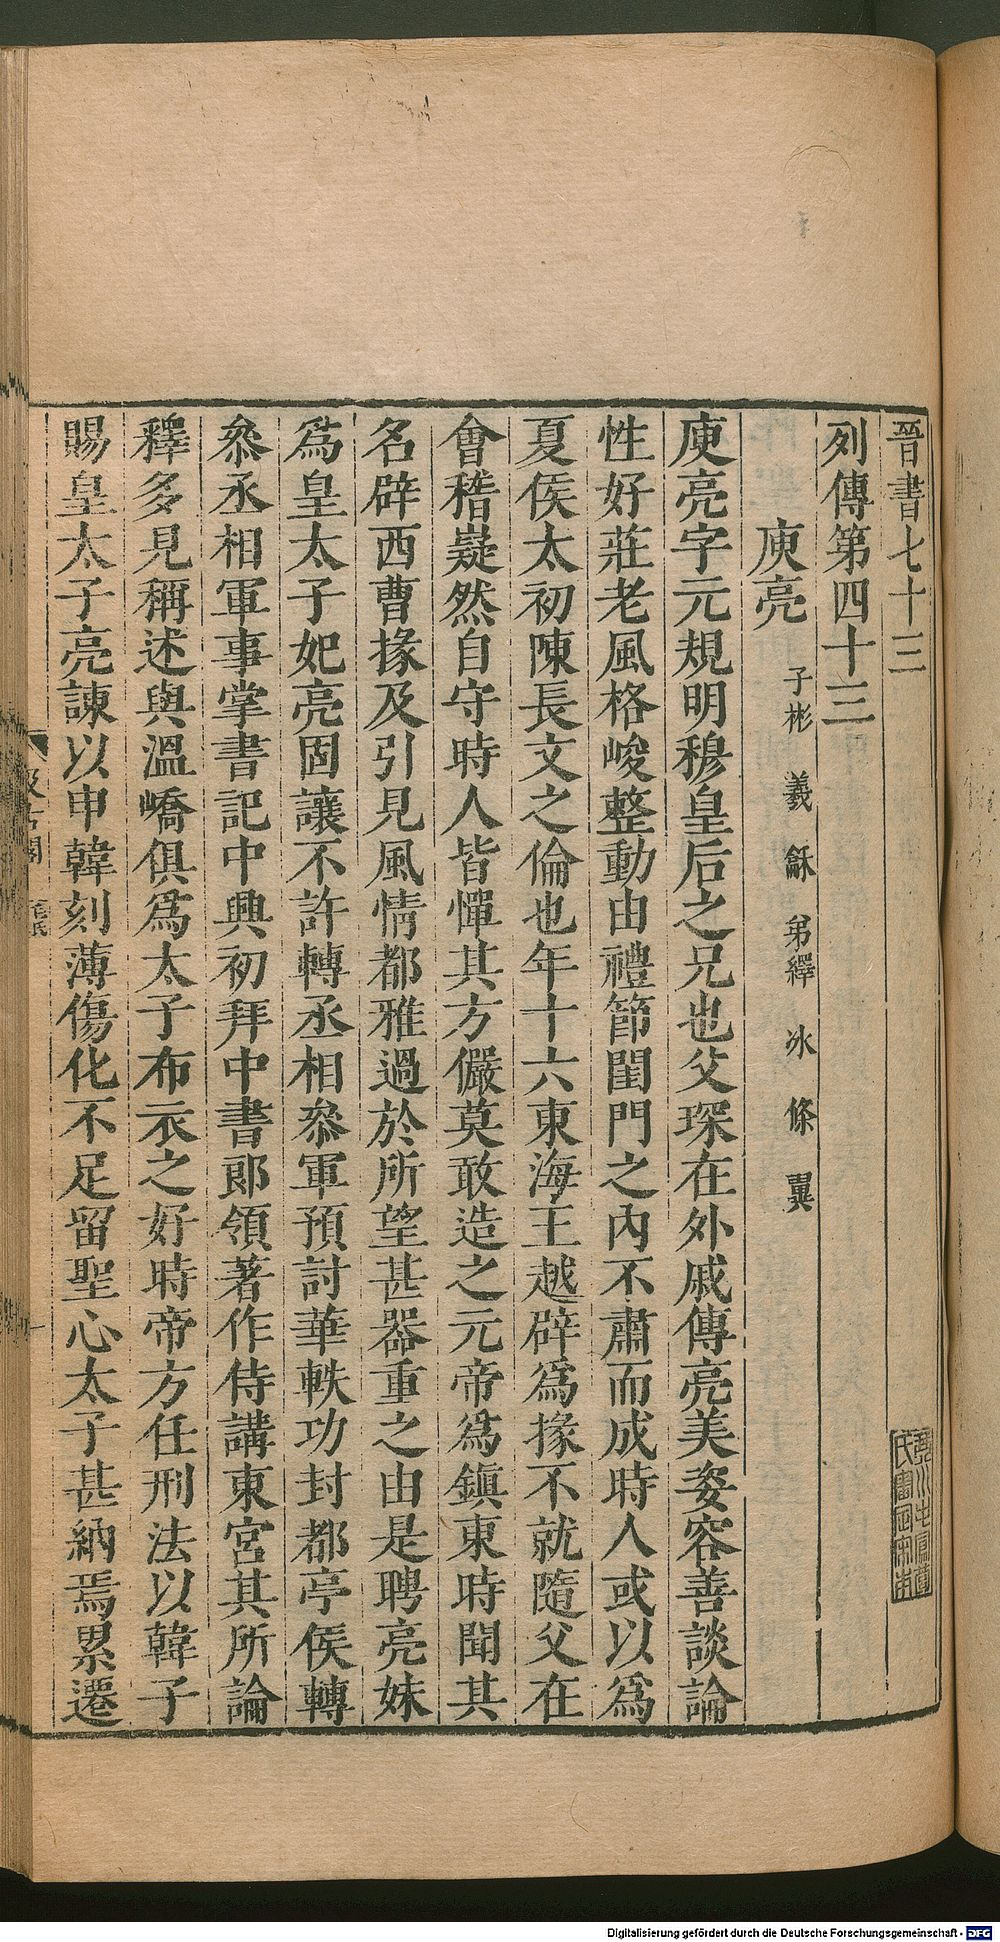 晉書七十三
列傳第四十三
庾亮 子彬 羲 龢 弟繹 冰 條 翼
庾亮字元規明穆皇后之兄也父琛在外戚傳亮美姿容善談論
性好莊老風格峻整動由禮節閨門之內不肅而成時人或以爲
夏侯太初陳長文之倫也年十六東海王越辟爲掾不就隨父在
會稽嶷然自守時人皆憚其方儼莫敢造之元帝爲鎭東時聞其
名辟西曹掾及引見風情都雅過於所望甚器重之由是聘亮妹
爲皇太子妃亮固讓不許轉丞相叅軍預討華軼功封都亭侯轉
叅丞相軍事掌書記中興初拜中書郎領著作侍講東宮其所論
釋多見稱述與溫嶠俱爲太子布衣之好時帝方任刑法以韓子
賜皇太子亮諫以申韓刻薄傷化不足留聖心太子甚納焉累遷
汲古閣
毛氏
Digitalisierung gefördert durch die Deutsche Forschungsgemeinschaft - DFG